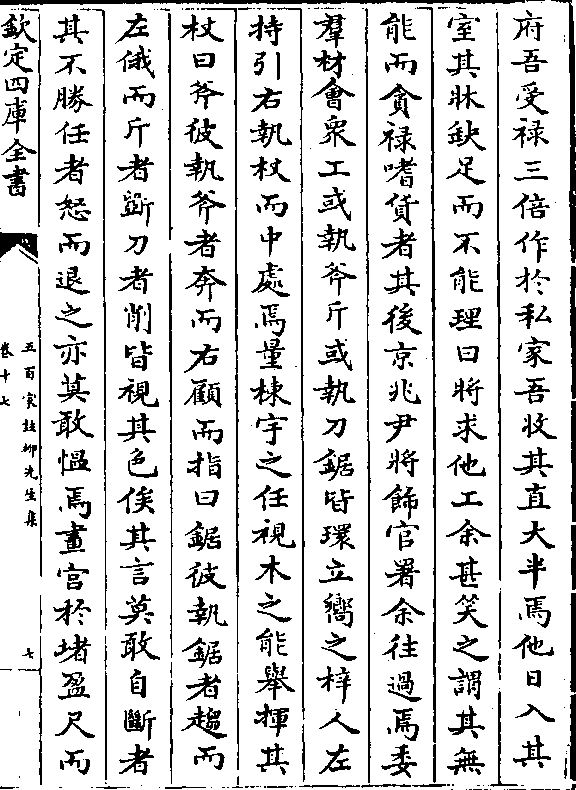 府吾受禄三倍作於私家吾收其直大半焉他日入其
室其牀缺足而不能理曰將求他工余甚笑之謂其無
能而貪禄嗜貨者其後京兆尹將飾官署余往過焉委
羣材會衆工或執斧斤或執刀鋸皆環立嚮之梓人左
持引右執杖而中處焉量棟宇之任視木之能舉揮其
杖曰斧彼執斧者奔而右顧而指曰鋸彼執鋸者趨而
左俄而斤者斲刀者削皆視其色俟其言莫敢自斷者
其不勝任者怒而退之亦莫敢愠焉畫宫於堵盈尺而
欽定四庫全書
五百家註柳先生集
卷十七
七